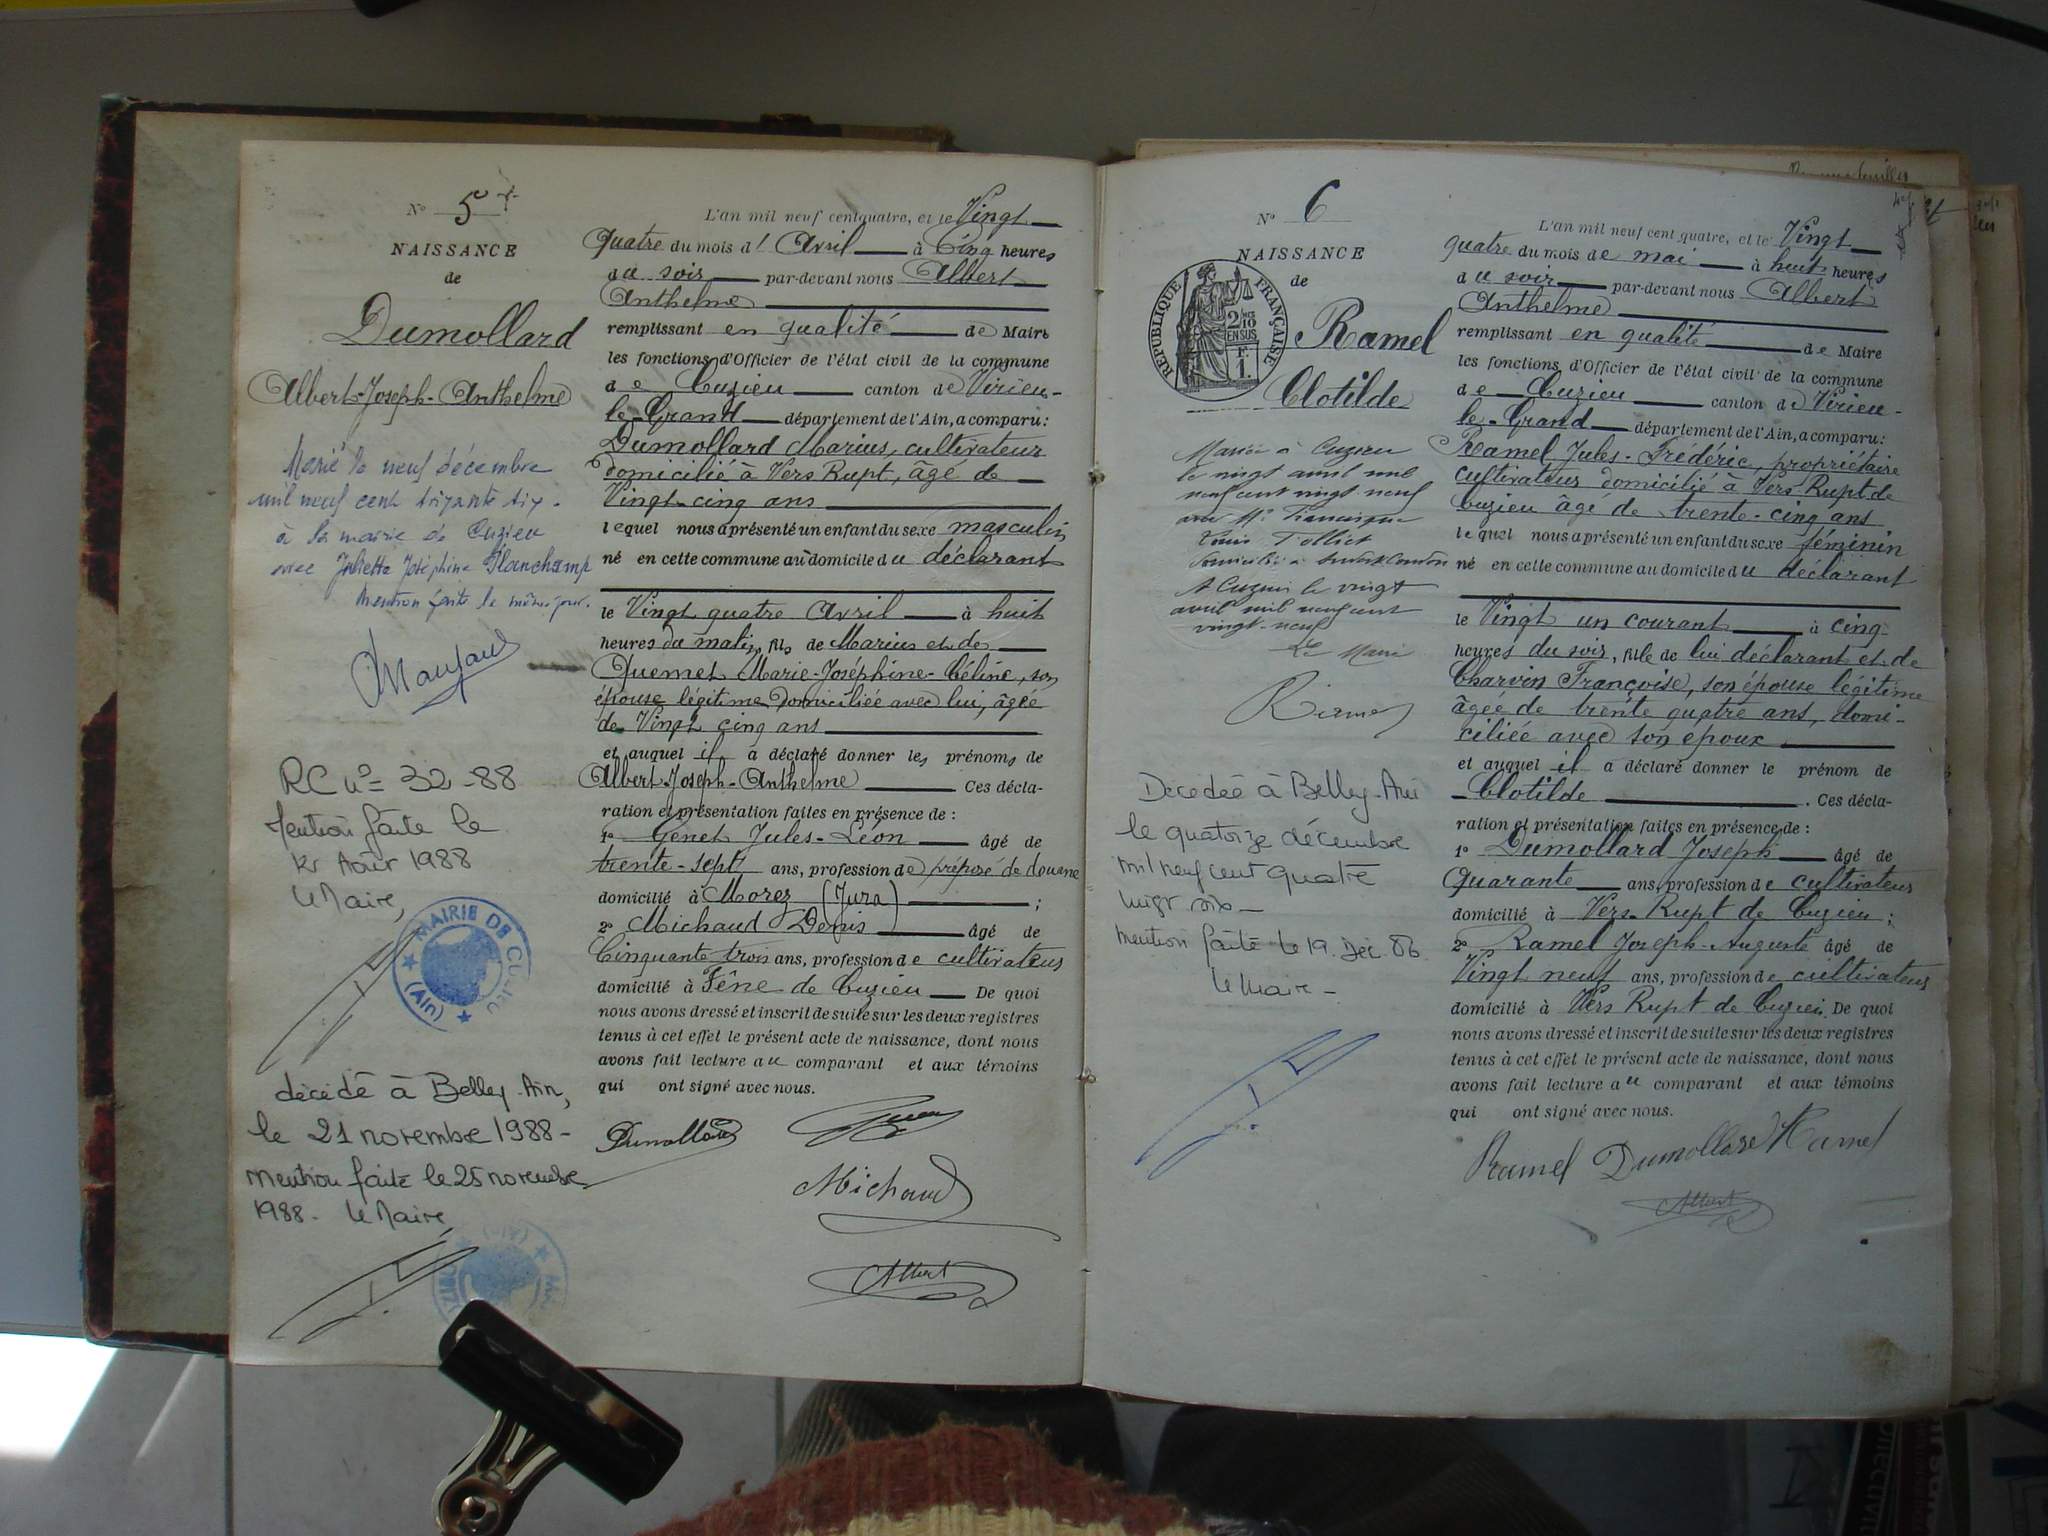 N° 5
NAISSANCE
de
Dumollard
Albert-Joseph-Anthelme
Marié le neuf décembre
mil neuf cent trente six.
à la mairie de Cuzieu
avec Juliette Joséphine Planchamp
Mention faite le même jour.
RC n° 32-88
Mention faite le
1er Août 1988
Le Maire,
MAIRIE DE CUZIEU
(Ain)
décédé à Belley-Ain,
le 21 novembre 1988-
Mention faite le 25 novembre
1988- Le Maire,
L'an mil neuf cent quatre, et le Vingt
quatre du mois d' Avril à Cinq heures
du soir par-devant nous Albert
Anthelme
remplissant en qualité de Maire
les fonctions d'Officier de l'état civil de la commune
de Cuzieu canton de Virieu-
le-Grand département de l'Ain, a comparu:
Dumollard Marius, cultivateur
domicilié à Vers Rupt, âgé de
Vingt-cinq ans
lequel nous a présenté un enfant du sexe masculin
né en cette commune au domicile du déclarant
le Vingt quatre Avril à huit
heures du matin, fils de Marius et de
Quemet Marie-Joséphine-Céline, son
épouse légitime domiciliée avec lui, âgée
de Vingt cinq ans
et auquel il a déclaré donner les prénoms de
Albert-Joseph-Anthelme Ces décla-
ration et présentation faites en présence de :
1° Genet Jules-Léon âgé de
trente-sept ans, profession de préposé de douane
domicilié à Morez (Jura) ;
2° Michaud Denis âgé de
Cinquante trois ans, profession de cultivateur
domicilié à Fêne de Cuzieu De quoi
nous avons dressé et inscrit de suite sur les deux registres
tenus à cet effet le présent acte de naissance, dont nous
avons fait lecture au comparant et aux témoins
qui ont signé avec nous.
Dumollard
Michaud
Albert
N° 6
NAISSANCE
de
RÉPUBLIQUE FRANÇAISE
2/10
EN SUS
F.
1.
Ramel
Clotilde
Mariée à Cuzieu
le vingt avril mil
neuf cent vingt neuf
avec Mr Francisque
Louis Tolliet
domicilié à
A Cuzieu le vingt
avril mil neuf cent
vingt-neuf
Le Maire
Décédée à Belley-Ain
le quatorze décembre
mil neuf cent quatre
vingt six-
Mention faite le 19. Déc. 86
Le Maire-
L'an mil neuf cent quatre, et le Vingt
quatre du mois de mai à huit heures
du soir par-devant nous Albert
Anthelme
remplissant en qualité de Maire
les fonctions d'Officier de l'état civil de la commune
de Cuzieu canton de Virieu-
le-Grand département de l'Ain, a comparu:
Ramel Jules-Frédéric, propriétaire
cultivateur domicilié à Vers Rupt de
Cuzieu âgé de trente-cinq ans
lequel nous a présenté un enfant du sexe féminin
né en cette commune au domicile du déclarant
le Vingt un courant à cinq
heures du soir, fille de lui déclarant et de
Charvin Françoise, son épouse légitime
âgée de trente quatre ans, domi-
ciliée avec son epoux
et auquel il a déclaré donner le prénom de
Clotilde . Ces décla-
ration et présentation faites en présence de :
1° Dumollard Joseph âgé de
Quarante ans, profession de cultivateur
domicilié à Vers-Rupt de Cuzieu ;
2° Ramel Joseph-Auguste âgé de
Vingt neuf ans, profession de cultivateur
domicilié à Vers Rupt de Cuzieu. De quoi
nous avons dressé et inscrit de suite sur les deux registres
tenus à cet effet le présent acte de naissance, dont nous
avons fait lecture au comparant et aux témoins
qui ont signé avec nous.
Ramel Dumollard Ramel
Albert